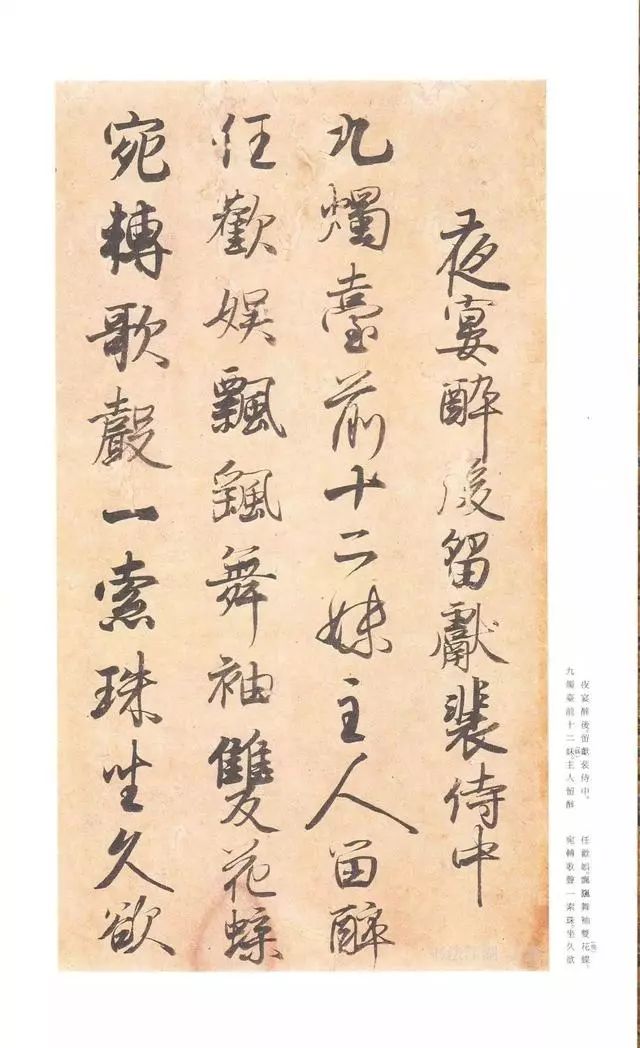 夜宴醉後留獻裴侍中
九燭臺前十二妹主人留醉
任歡娛飄颻舞袖雙花蝶
宛轉歌聲一索珠坐久欲
夜宴醉後留獻裴侍中。
九燭臺前十二妹(姝)。主人留醉
任歡娛。飄颻舞袖雙花(化)蝶。
宛轉歌聲一索珠。坐久欲